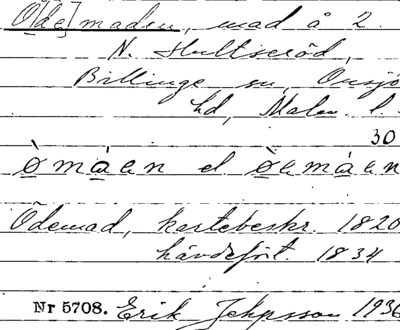 Öde]maden, mad å 2.
N. Hultseröd,
Billinge sn, Onsjö
hd, Malm. l.
30
ò̲mà̲en el ò̲emà̲en
Ödemad, kartebeskr. 1820
hävdeört. 1834
Nr 5708. Erik Jepsson 1936